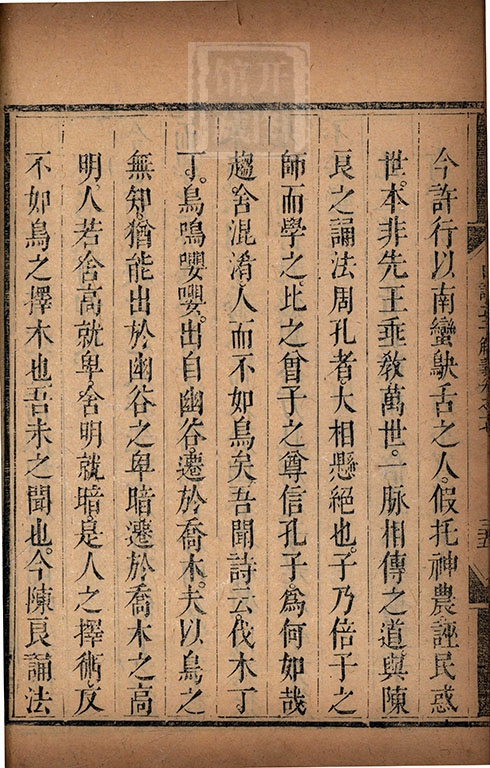 今許行以南蠻鴃舌之人。假托神農。誣民惑
世。本非先王垂敎萬世。一脉相傳之道。與陳
良之誦法周孔者。大相懸絕也。子乃倍子之
師而學之。比之曾子之尊信孔子。爲何如哉
趨舍混淆。人而不如鳥矣。吾聞詩云。伐木丁
丁。鳥鳴嚶嚶。出自幽谷。遷於喬木。夫以鳥之
無知。猶能出於幽谷之卑暗。遷於喬木之高
明。人若舍高就卑。舍明就暗。是人之擇術。反
不如鳥之擇木也。吾未之聞也。今陳良誦法